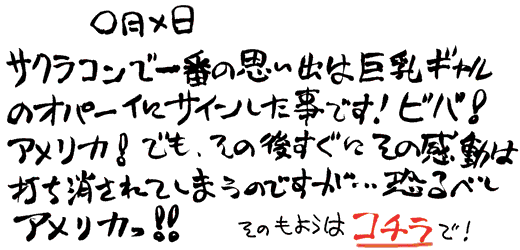 〇月×日
サクラコンで一番の思い出は巨乳ギャル
のオパーイにサインした事です!ビバ!
アメリカ!でも、その後すぐにその感動は
打ち消されてしまうのですが…恐るべし
アメリカっ!!
そのもようはコチラで!